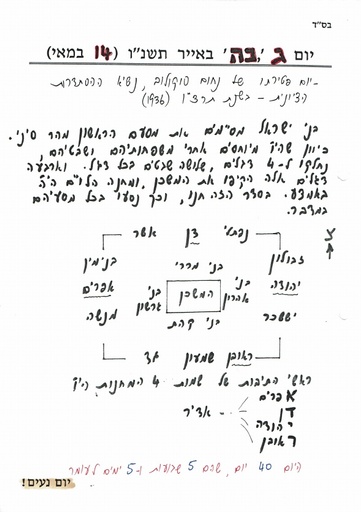 בס"ד
יום ג', כה' באייר תשנ"ו (14 במאי)
-יום פטירתו של נחום סוקולוב, נשיא ההסתדרות
הציונית - בשנת תרצ"ו (1936)
בני ישראל מסיימים את מסעם הראשון מהר סיני.
כיוון שהיו מיוחסים אחרי משפחותיהם ושבטיהם,
נחלקו ל-4 דגלים, שלושה שבטים בכל דגל. וארבעה
דגלים אלה הקיפו את המשכן, ומחנה הלויים היה
באמצע. בסדר הזה חנו, וכך נסעו בכל מסעיהם
במדבר.
נפתלי דן אשר
צ
זבולון בני מררי בנימין
יהודה בני אהרון המשכן בני גרשון אפרים
יששכר בני קהת מנשה
ראובן שמעון גד
ראשי התיבות של שמות 4 המחנות היו
אפרים
דן
אדי"ר
יהודה
ראובן
היום 40 יום, שהם 5 שבועות ו-5 ימים לעומר
יום נעים!